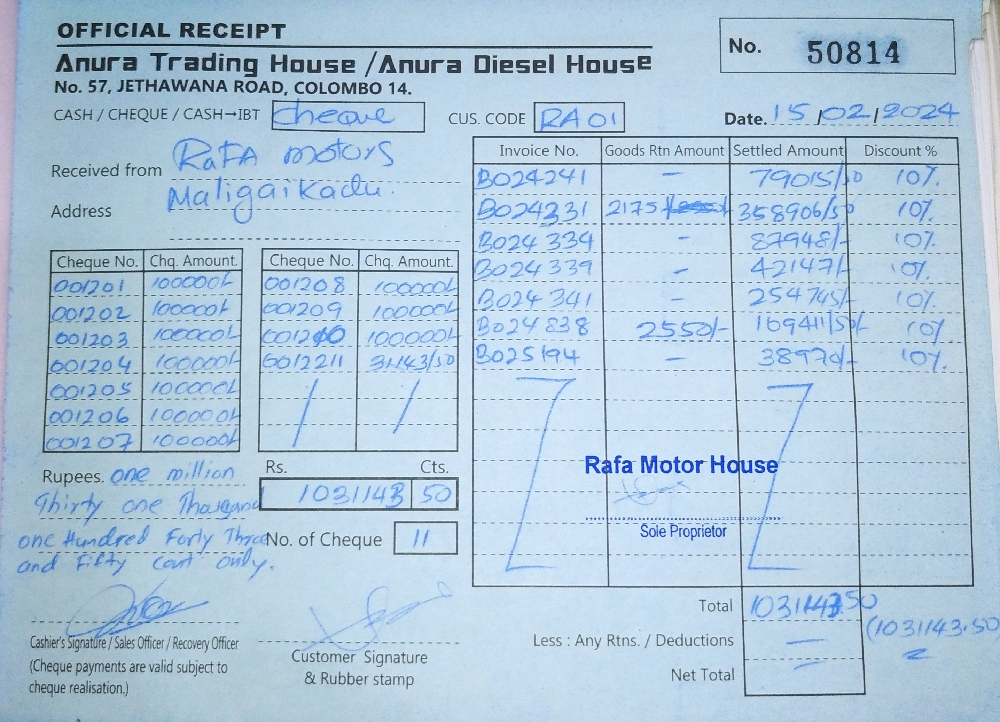 OFFICIAL RECEIPT
No. 50814
Anura Trading House / Anura Diesel House
No. 57, JETHAWANA ROAD, COLOMBO 14.
CASH / CHEQUE / CASH→IBT cheque CUS. CODE RA01 Date. 15/02/2024
Received from RaFA motors
Address Maligaikadu.
Invoice No. Goods Rtn Amount Settled Amount Discount %
B024241 - 79015/50 10%
B024331 2175/- 358906/50 10%
B024334 - 87948/- 10%
B024339 - 42147/- 10%
B024341 - 254745/- 10%
B024838 2550/- 169411/50 10%
B025194 - 38970/- 10%
Cheque No. Chq. Amount. Cheque No. Chq. Amount.
001201 100000/- 001208 100000/-
001202 100000/- 001209 100000/-
001203 100000/- 001210 100000/-
001204 100000/- 0012211 31143/50
001205 100000/-
001206 100000/-
001207 100000/-
Rupees. one million
Thirty one Thousand
one Hundred Forty Three
and Fifty cent only.
Rs. Cts.
1031143 50
No. of Cheque 11
Rafa Motor House
Sole Proprietor
Total 1031143.50
(1031143.50
Less : Any Rtns. / Deductions
Net Total
Cashier's Signature / Sales Officer / Recovery Officer
(Cheque payments are valid subject to
cheque realisation.)
Customer Signature
& Rubber stamp